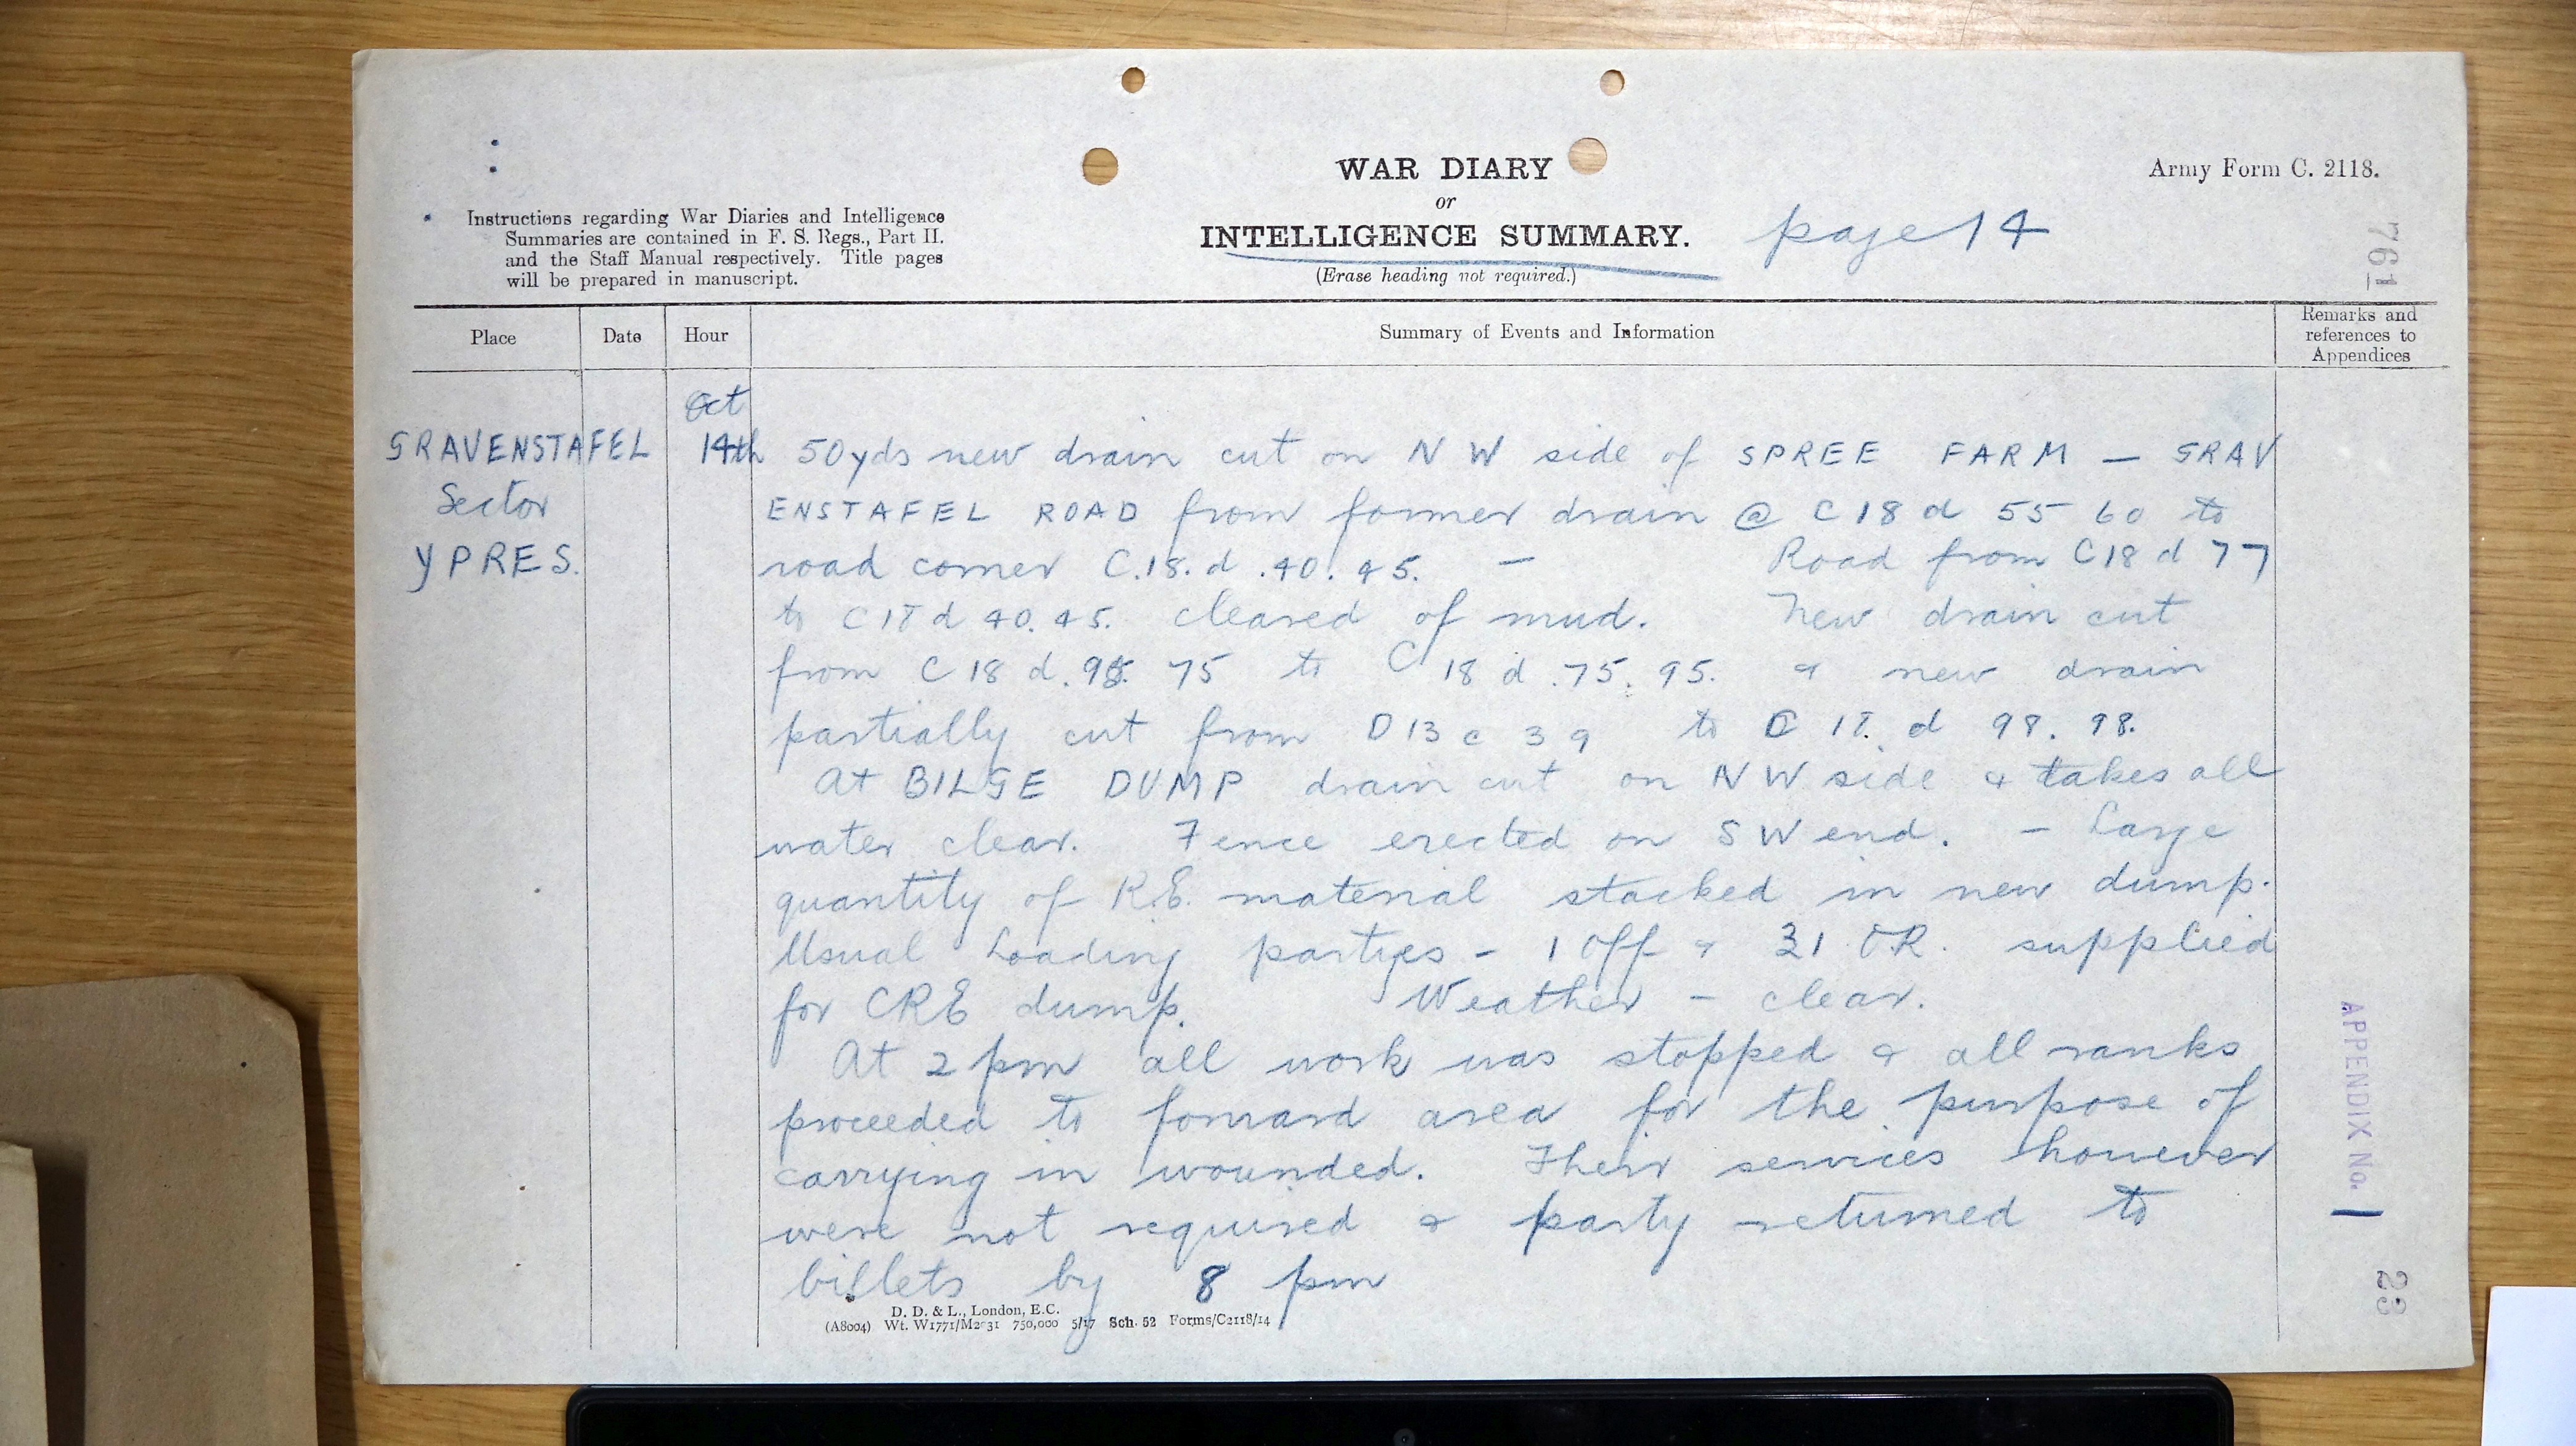 WAR DIARY
or
INTELLIGENCE SUMMARY.
(Erase heading not required.)
page 14
Army Form C. 2118.
761
Instructions regarding War Diaries and Intelligence
Summaries are contained in F. S. Regs., Part II.
and the Staff Manual respectively. Title pages
will be prepared in manuscript.
Place
Date
Hour
Summary of Events and Information
Remarks and
references to
Appendices
GRAVENSTAFEL
Sector
YPRES.
Oct
14th
50yds new drain cut on N W side of SPREE FARM — GRAV
ENSTAFEL ROAD from former drain @ C 18 d 55 60 to
road corner C.18.d.40.45. — Road from C18 d 77
to C18 d 40.45. cleared of mud. New drain cut
from C 18 d. 95. 75 to C 18 d .75. 95. & new drain
partially cut from D 13 c 3 9 to C 18. d 98. 98.
At BILGE DUMP drain cut on N W side & takes all
water clear. Fence erected on S W end. – Large
quantity of R.E. material stacked in new dump.
Usual Loading parties – 1 Off & 31 O.R. supplied
for CRE dump. Weather – clear.
At 2 pm all work was stopped & all ranks
proceeded to forward area for the purpose of
carrying in wounded. Their services however
were not required & party returned to
billets by 8 pm
APPENDIX No. 1
23
D. D. & L., London, E.C.
(A8004) Wt. W1771/M2031 750,000 5/17 Sch. 52 Forms/C2118/14